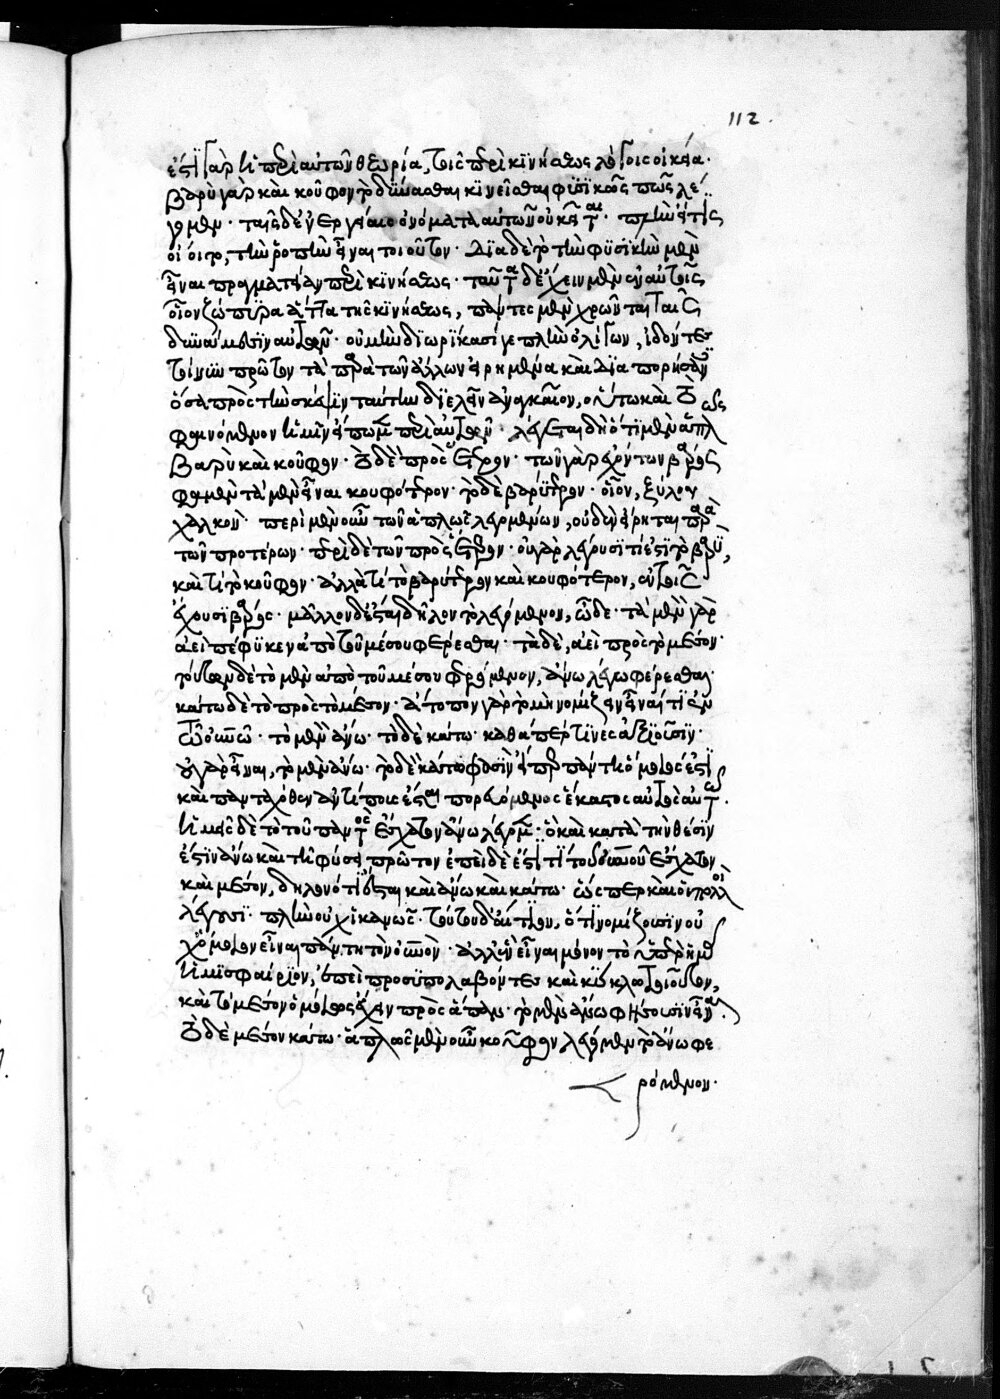 ἔστι γὰρ ἡ περὶ αὐτῶν θεωρία, τοῖς περὶ κινήσεως λόγοις οἰκεία·
βαρὺ γὰρ καὶ κοῦφον τῶ δύνασθαι κινεῖσθαι φυσικῶς πως λέ
γομεν· ταῖς δὲ ἐνεργείαις ὀνόματα αὐτῶν οὐ κεῖται· πλὴν εἴ τις
οἴοιτο, τὴν ῥοπὴν εἶναι τοιοῦτον· διὰ δὲ τὸ τὴν φυσικὴν μὲν
εἶναι πραγματείαν περὶ κινήσεως· ταῦτα δὲ ἔχειν μὲν ἐν αὑτοῖς
οἷον ζώπυρα ἄττα τῆς κινήσεως, πάντες μὲν χρῶνται ταῖς
δυνάμεσιν αὐτῶν· οὐ μὴν διωρίκασί γε πλὴν ὀλίγων, ἰδόντες
οὖν πρῶτον τὰ παρὰ τῶν ἄλλων εἰρημένα καὶ διαπορήσαντες
ὅσα πρὸς τὴν σκέψιν ταύτην διελεῖν ἀναγκαῖον, οὕτω καὶ τὸ
φαινόμενον ἡμῖν εἴπωμεν περὶ αὐτῶν· λέγεται δὴ ὅτι μὲν ἁπλῶς
βαρὺ καὶ κοῦφον· τὸ δὲ πρὸς ἕτερον· τῶν γὰρ ἐχόντων βάρος
φαμὲν τὰ μὲν εἶναι κουφότερον· τὸ δὲ βαρύτερον· οἷον, ξύλου
χαλκόν· περὶ μὲν οὖν τῶν ἁπλῶς λεγομένων, οὐδὲν εἴρηται παρὰ
τῶν προτέρων· περὶ δὲ τῶν πρὸς ἕτερον· οὐ γὰρ λέγουσι τί ἐστι τὸ βαρύ,
καὶ τί τὸ κοῦφον· ἀλλὰ τί τὸ βαρύτερον καὶ κουφότερον, ἐν τοῖς
ἔχουσι βάρος· μᾶλλον δὲ ἔσται δῆλον τὸ λεγόμενον, ὧδε· τὰ μὲν γὰρ
ἀεὶ πέφυκεν ἀπὸ τοῦ μέσου φέρεσθαι· τὰ δὲ, ἀεὶ πρὸς τὸ μέσον·
τούτων δὲ τὸ μὲν ἀπὸ τοῦ μέσου φερόμενον, ἄνω λέγω φέρεσθαι·
κάτω δὲ τὸ πρὸς τὸ μέσον· ἄτοπον γὰρ τὸ μὴ νομίζειν εἶναί τι ἐν
τῶ οὐνῶ· τὸ μὲν ἄνω· τὸ δὲ κάτω· καθάπερ τινὲς ἀξιοῦσιν·
οὐ γὰρ εἶναι, τὸ μὲν ἄνω· τὸ δὲ κάτω φασὶν εἴπερ πάντη ὅμοιός ἐστι
καὶ πανταχόθεν ἀντίπους ἔσται πορευόμενος ἕκαστος αὐτὸς αὑτ·
ἡμεῖς δὲ τὸ τοῦ παντὸς ἔσχατον ἄνω λέγομεν· ὃ καὶ κατὰ τὴν θέσιν
ἐστὶν ἄνω καὶ τῆ φύσει πρῶτον ἐπεὶ δὲ ἐστί τι τοῦ οὐνοῦ ἔσχατον
καὶ μέσον, δηλονότι ἔσται καὶ ἄνω καὶ κάτω· ὥσπερ καὶ οἱ πολλοὶ
λέγουσι· πλὴν οὐχ ἱκανῶς· τούτου δ' αἴτιον, ὅτι νομίζουσιν οὐ
χ' ὅμοιον εἶναι πάντη τὸν οὐνὸν· ἀλλ' ἓν εἶναι μόνον τὸ ὑπὲρ ἡμᾶς
ἡμισφαίριον, ἐπεὶ προσυπολαβόντες καὶ κύκλω τοιοῦτον,
καὶ τὸ μέσον ὁμοίως ἔχειν πρὸς ἅπαν· τὸ μὲν ἄνω φήσουσιν εἶναι·
τὸ δὲ μέσον κάτω· ἁπλῶς μὲν οὖν κοῦφον λέγομεν τὸ ἄνω φε
ρόμενον·
112.